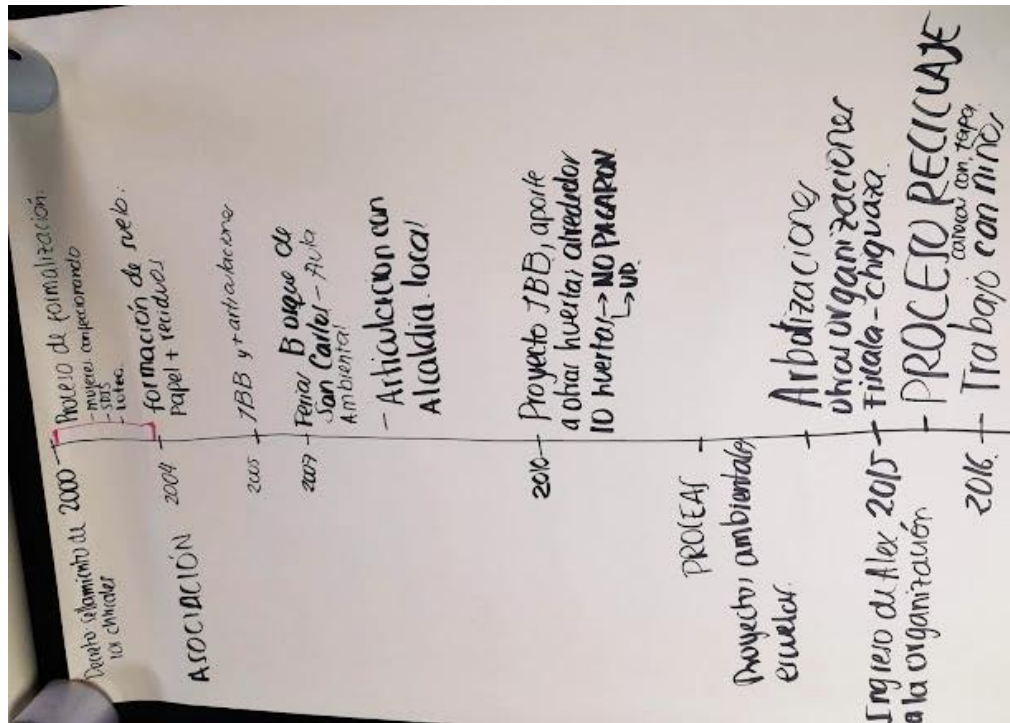 Decreto sellamiento de 2000
los chircales
Proceso de formalización:
- mujeres confeccionando
- SDIS
ASOCIACIÓN 2004
formación de suelo:
papel + reciduos
2005
JBB y + articulaciones
2007
Ferias Bosque de
San Carlos - Aula
Ambiental
- Articulacion con
Alcaldia local
2010
Proyecto JBB, aporte
a otras huertas alrededor
10 huertas → NO PAGARON
↳ UD.
PROCEAS
Proyectos ambientales
escolar.
Arbolizaciones
Otras organizaciones
Ingreso de Alex 2015
a la organización
- Fiscala - chiguaza.
- PROCESO RECICLAJE
caneca con tapa
2016
Trabajo con niños